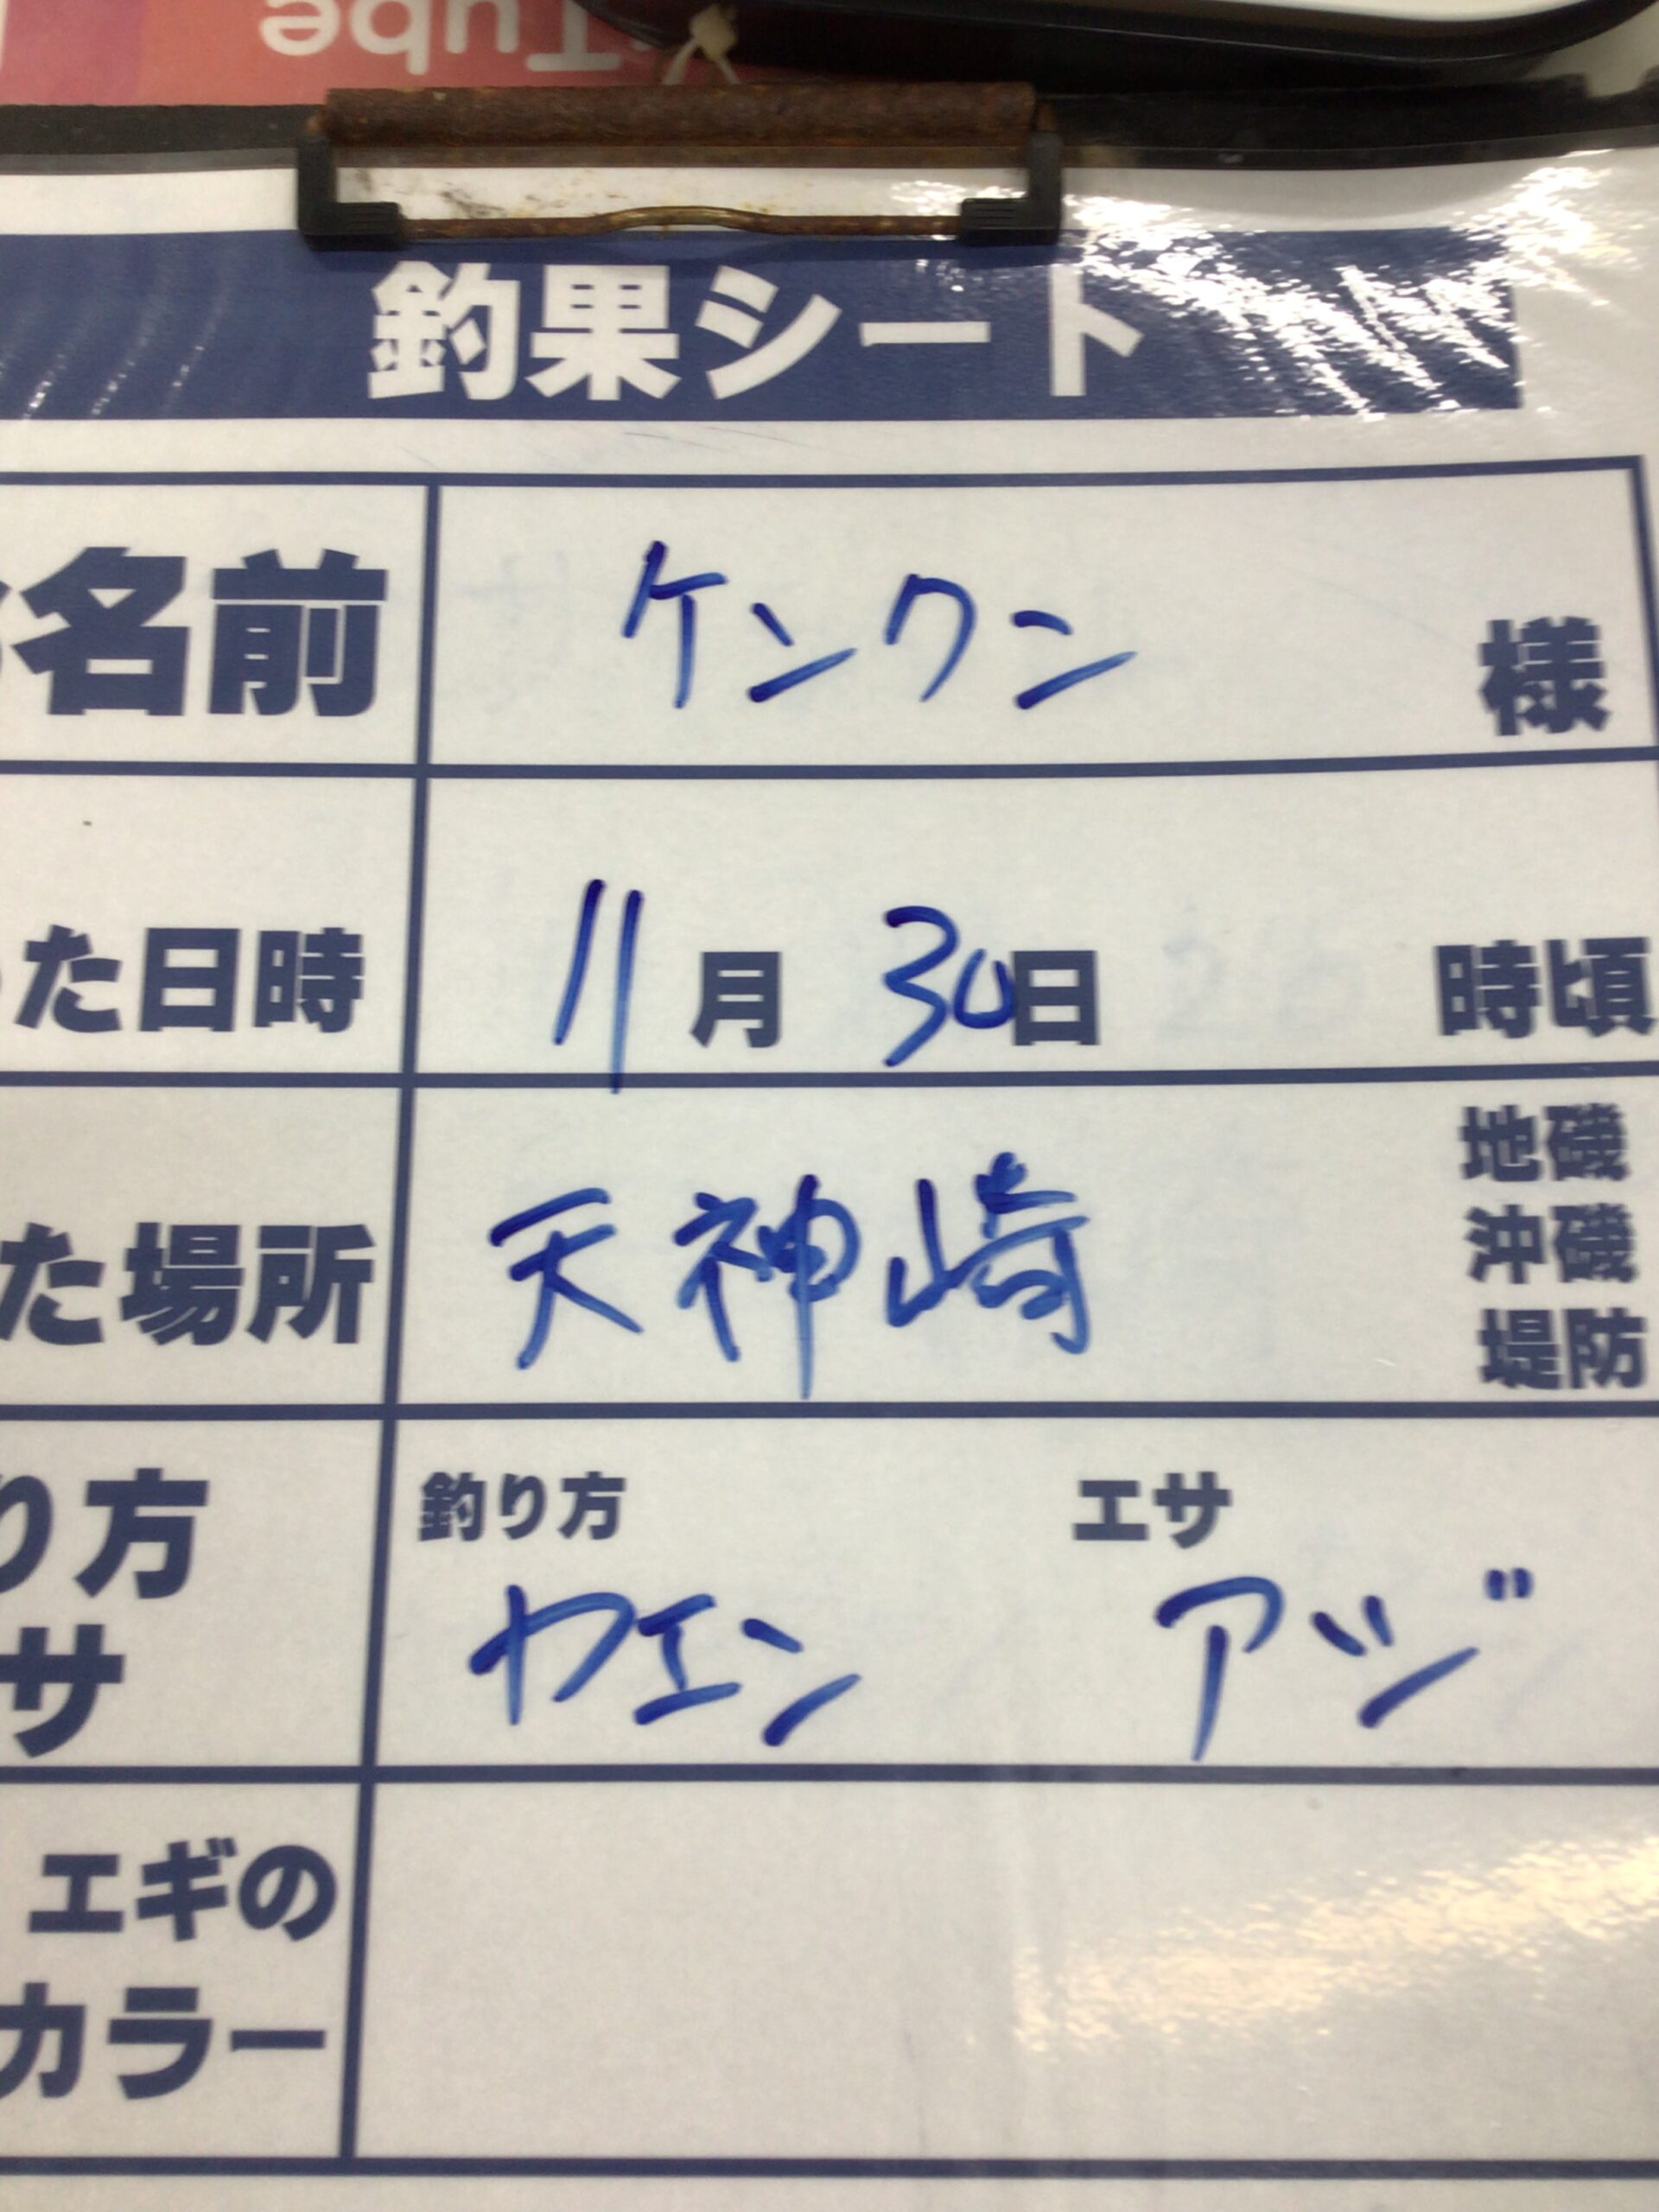 Tube
釣果シート
名前 ケンクン 様
た日時 11月30日 時頃
た場所 天神崎 地磯
沖磯
堤防
り方 釣り方 エサ
サ ヤエン アジ
エギの
カラー